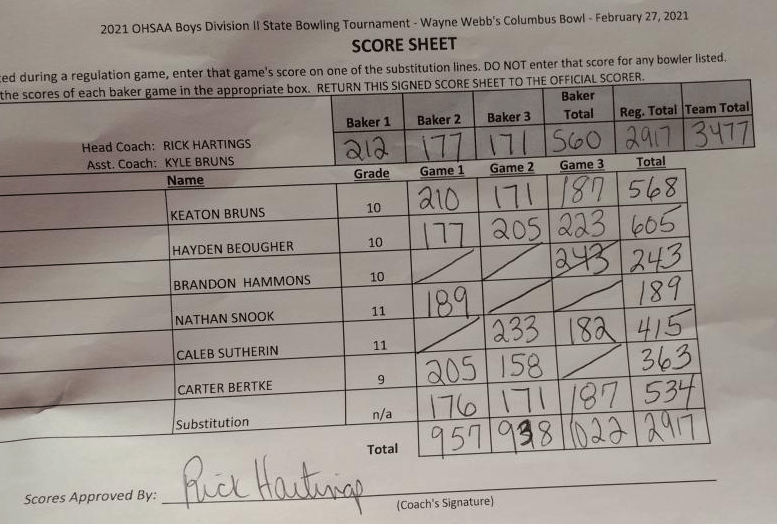 2021 OHSAA Boys Division II State Bowling Tournament - Wayne Webb's Columbus Bowl - February 27, 2021
SCORE SHEET
ed during a regulation game, enter that game's score on one of the substitution lines. DO NOT enter that score for any bowler listed.
the scores of each baker game in the appropriate box. RETURN THIS SIGNED SCORE SHEET TO THE OFFICIAL SCORER.
Baker 1 Baker 2 Baker 3 Baker Total Reg. Total Team Total
Head Coach: RICK HARTINGS 212 177 171 560 2917 3477
Asst. Coach: KYLE BRUNS
Name Grade Game 1 Game 2 Game 3 Total
KEATON BRUNS 10 210 171 187 568
HAYDEN BEOUGHER 10 177 205 223 605
BRANDON HAMMONS 10 243 243
NATHAN SNOOK 11 189 189
CALEB SUTHERIN 11 233 182 415
CARTER BERTKE 9 205 158 363
Substitution n/a 176 171 187 534
Total 957 938 1022 2917
Scores Approved By: Rick Hartings
(Coach's Signature)